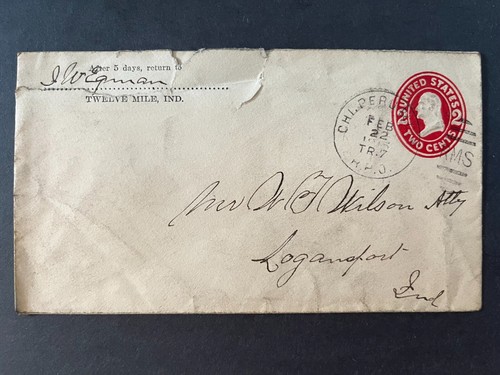 After 5 days, return to
J W Egman
TWELVE MILE, IND.
UNITED STATES
2 2
TWO CENTS
CHI.
FEB
22
TR.7
R.P.O.
RMS
Mr W T Wilson Atty
Logansport
Ind